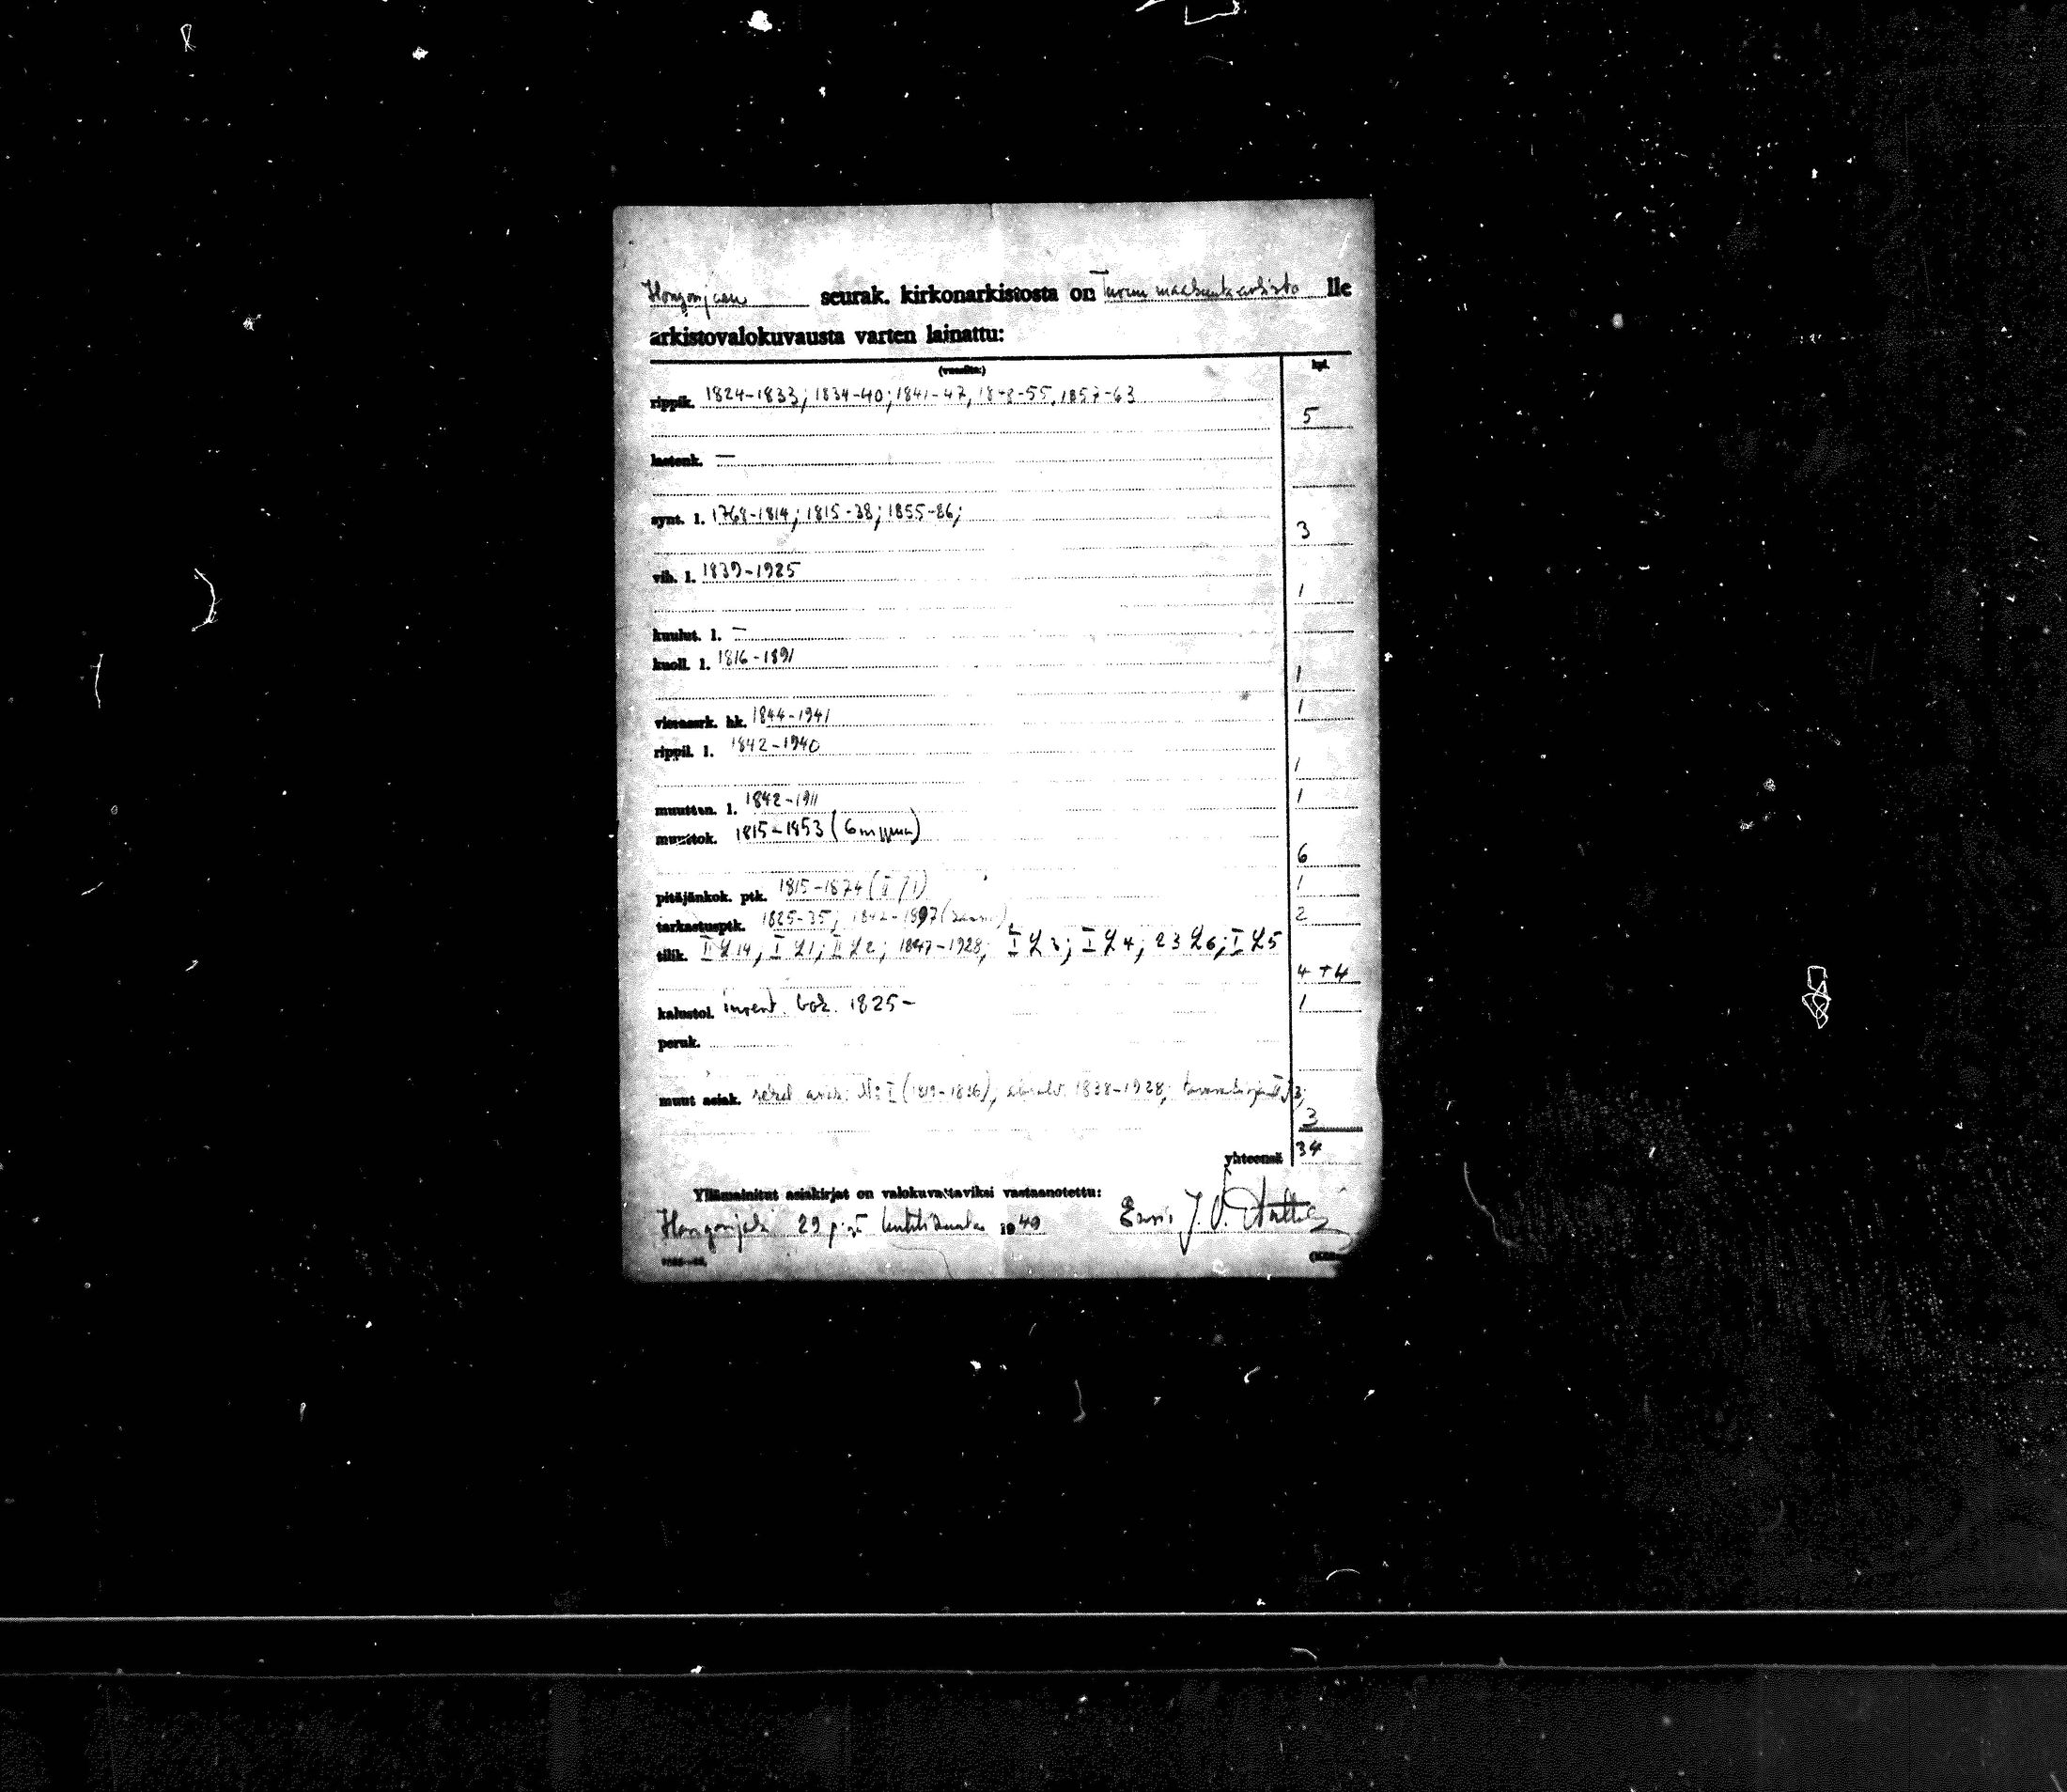 Hongonjoen seurak. kirkonarkistosta on Turun maakunta-arkisto lle
arkistovalokuvausta varten lainattu:
(vuosilta:) kpl.
rippik. 1824-1833; 1834-40; 1841-47, 1848-55, 1857-63
5
lastenk. —
synt. l. 1768-1814; 1815-38; 1855-86;
3
vih. l. 1839-1925
1
kuulut. l. —
kuoll. l. 1816-1891
1
vieraspk. hk. 1844-1941 1
rippil. l. 1842-1940
1
muuttan. l. 1842-1911 1
muuttok. 1815-1853 (6 nippua)
6
pitäjänkok. ptk. 1815-1874 (II J 1) 1
tarkastusptk. 1825-35; 1842-1897 2
tilik. II L 14; I L 1; II L 2; 1847-1928; I L 3; I L 4; 23 L 6; I L 5
4 + 4
kalustol. invent. bok. 1825- 1
peruk.
muut asiak. N:o I (1819-1836); 1838-1928;
3
yhteensä 34
Yllämainitut asiakirjat on valokuvattaviksi vastaanotettu:
Hongonjoki 29 p:nä huhtikuuta 1949